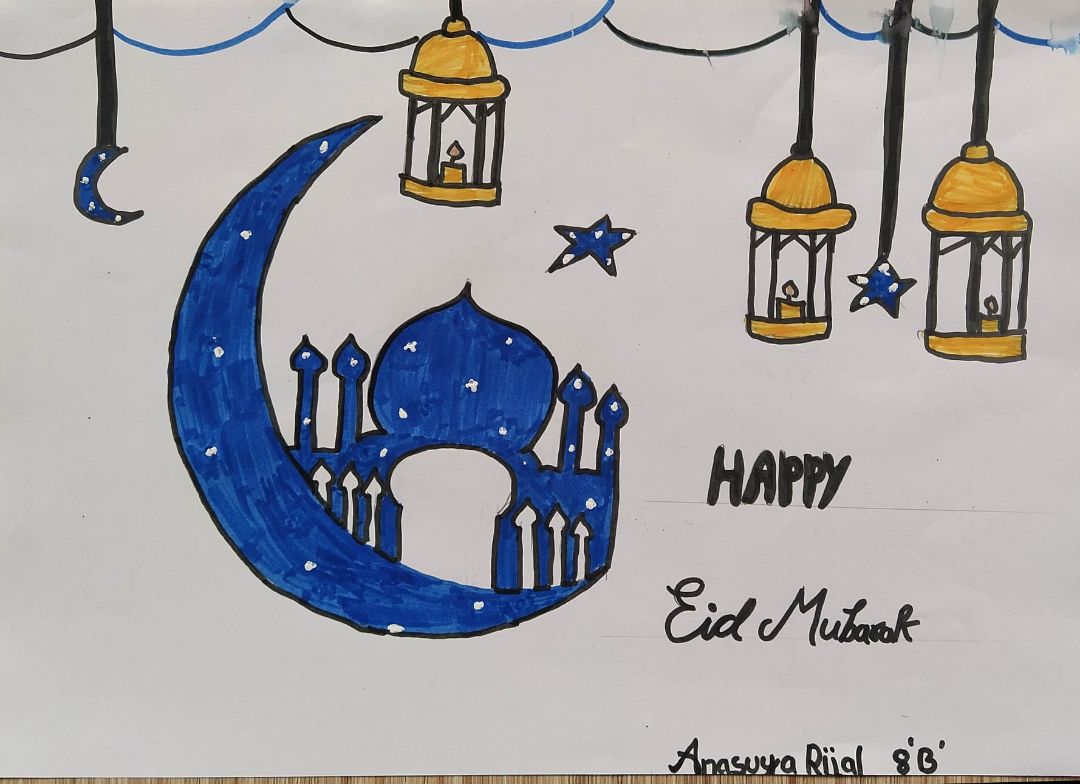 HAPPY
Eid Mubarak
Anasuya Rijal 8'B'